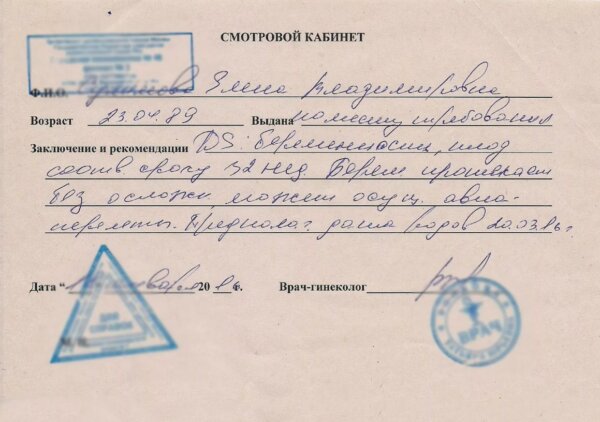 СМОТРОВОЙ КАБИНЕТ
Ф.И.О. Елена Владимировна
Возраст 23.04.89 Выдана по месту требования
Заключение и рекомендации DS: беременность, плод
соотв сроку 32 нед Берем протекает
без осложн, может осущ. авиа-
перелёты. Предполаг. дата родов 20.03.16г.
Дата “ января 20 16 г. Врач-гинеколог
ДЛЯ
СПРАВОК
М.П.
ВРАЧ